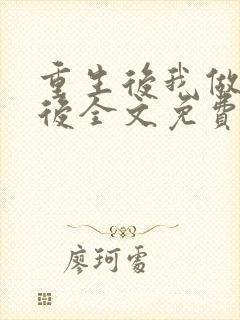 重生後我做
後全文免費
廖珂雪